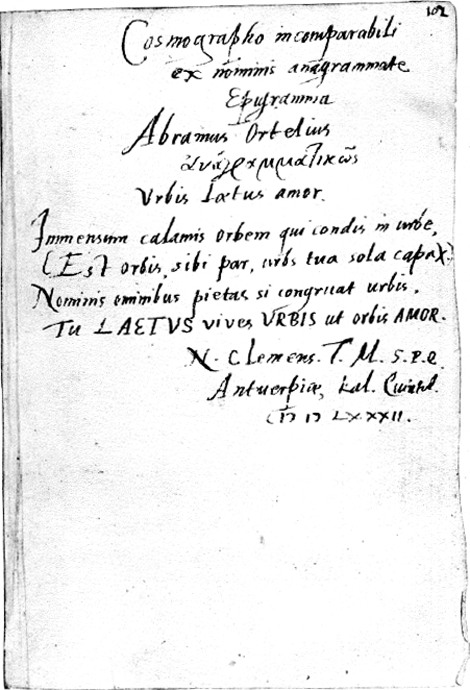 102
Cosmographo incomparabili
ex nominis anagrammate
Epigramma
Abramus Ortelius
ἀναγραμματικῶς
Vrbis Laetus amor.
Immensum calamis orbem qui condis in urbe,
(Est orbis, sibi par, urbs tua sola capax)
Nominis ominibus pietas si congruat urbis.
Tu LAETVS vives VRBIS ut orbis AMOR.
N. Clemens. T. M. S. P. Q.
Antuerpiæ, kal.
LXXXII.